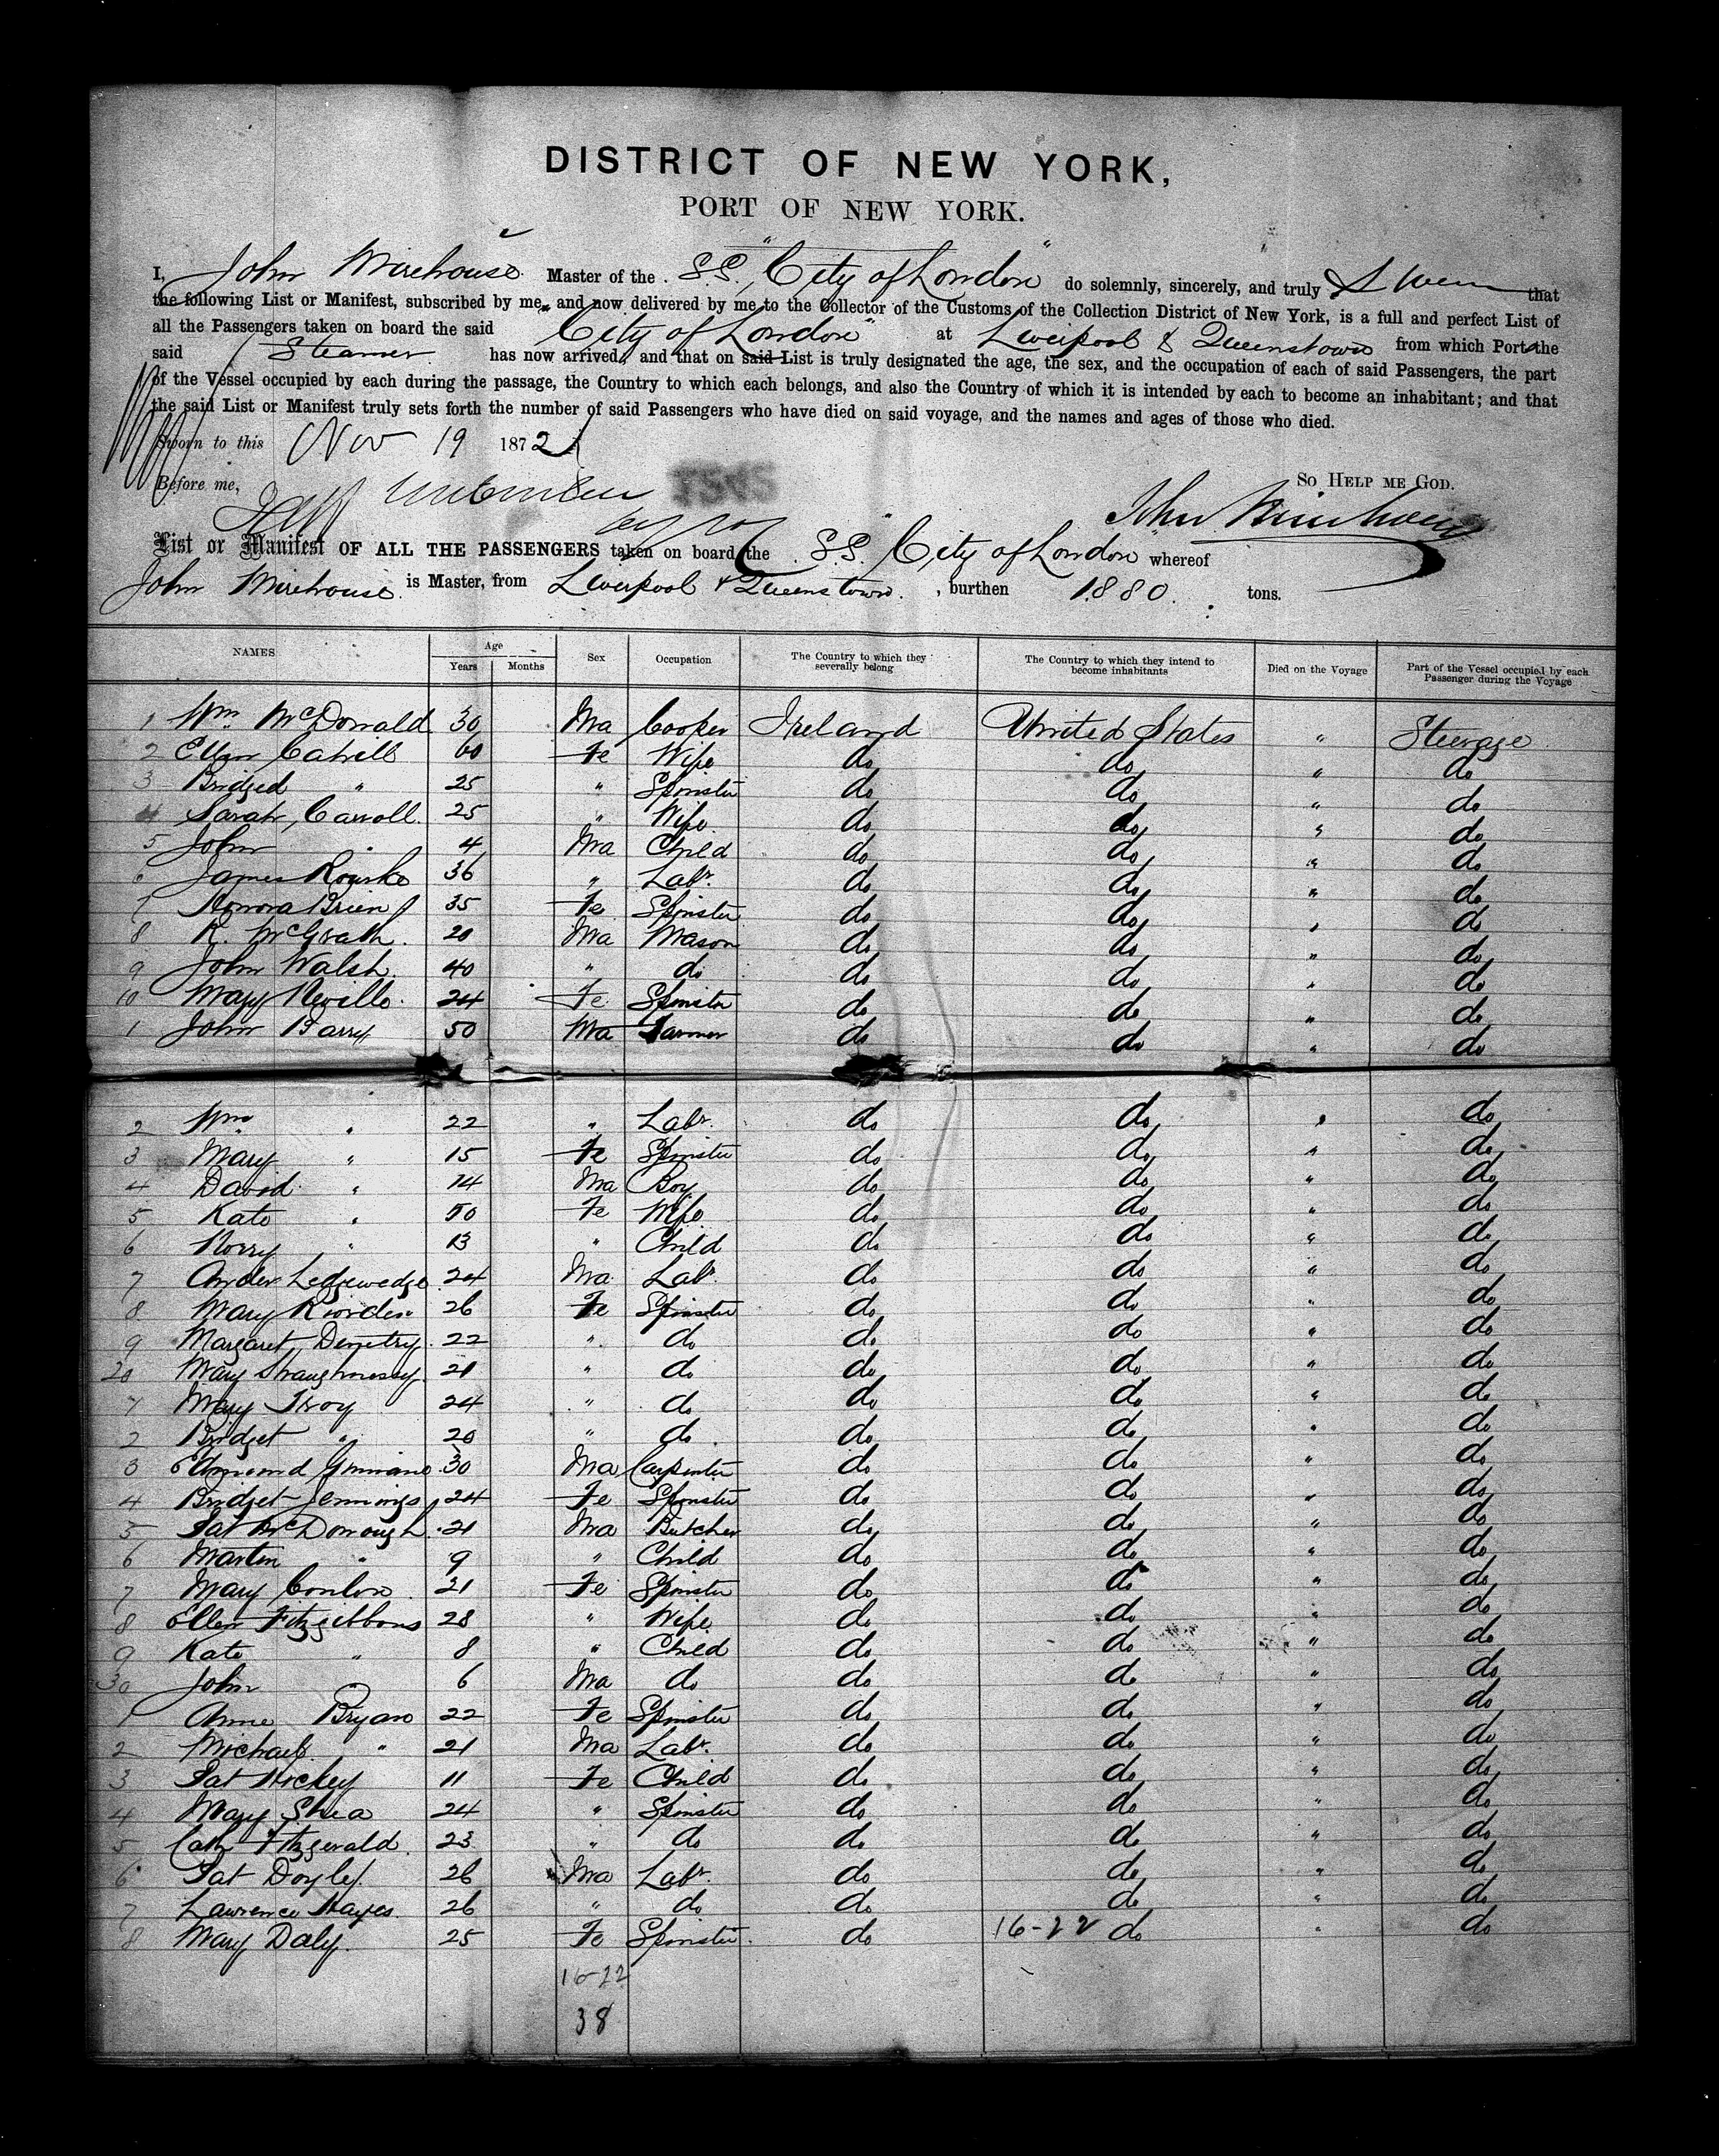 DISTRICT OF NEW YORK,
PORT OF NEW YORK.
I, John Mirehouse Master of the S.S. "City of London" do solemnly, sincerely, and truly Swear that
the following List or Manifest, subscribed by me, and now delivered by me to the Collector of the Customs of the Collection District of New York, is a full and perfect List of
all the Passengers taken on board the said "City of London" at Liverpool & Queenstown from which Port the
said Steamer has now arrived, and that on said List is truly designated the age, the sex, and the occupation of each of said Passengers, the part
of the Vessel occupied by each during the passage, the Country to which each belongs, and also the Country of which it is intended by each to become an inhabitant; and that
the said List or Manifest truly sets forth the number of said Passengers who have died on said voyage, and the names and ages of those who died.
Sworn to this Nov 19 1872
Before me, So Help me God.
John Mirehouse
List or Manifest OF ALL THE PASSENGERS taken on board the S.S. "City of London" whereof
John Mirehouse is Master, from Liverpool & Queenstown, burthen 1880 tons.
NAMES Age Years Months Sex Occupation The Country to which they severally belong The Country to which they intend to become inhabitants Died on the Voyage Part of the Vessel occupied by each Passenger during the Voyage
1 Wm McDonald 30 Ma Cooper Ireland United States " Steerage
2 Ellen Cahill 60 Fe Wife do do " do
3 Bridged " 25 " Spinster do do " do
4 Sarah Carroll 25 " Wife do do " do
5 John 4 Ma Child do do " do
6 James Rourke 36 " Labr. do do " do
7 Honora Brien 35 Fe Spinster do do " do
8 K. McGrath 20 Ma Mason do do " do
9 John Walsh 40 " do do do " do
10 Mary Neville 24 Fe Spinster do do " do
1 John Barry 50 Ma Farmer do do " do
2 Wm " 22 " Labr. do do " do
3 Mary " 15 Fe Spinster do do " do
4 David " 14 Ma Boy do do " do
5 Kate " 50 Fe Wife do do " do
6 Norry " 13 " Child do do " do
7 Andw Ledgewedge 24 Ma Labr. do do " do
8 Mary Riorden 26 Fe Spinster do do " do
9 Margaret Demetry 22 " do do do " do
20 Mary Shaughnessy 21 " do do do " do
1 Mary Troy 24 " do do do " do
2 Bridget " 20 " do do do " do
3 Edmond 30 Ma Carpenter do do " do
4 Bridget Jennings 24 Fe Spinster do do " do
5 Pat McDonough 21 Ma Butcher do do " do
6 Martin " 9 " Child do do " do
7 Mary Conlon 21 Fe Spinster do do " do
8 Ellen Fitzgibbons 28 " Wife do do " do
9 Kate " 8 " Child do do " do
30 John 6 Ma do do do " do
1 Anne Bryan 22 Fe Spinster do do " do
2 Michael " 21 Ma Labr. do do " do
3 Pat Hickey 11 Fe Child do do " do
4 Mary Shea 24 " Spinster do do " do
5 Cath Fitzgerald 23 " do do do " do
6 Pat Doyley 26 Ma Labr. do do " do
7 Lawrence Hayes 26 " do do do " do
8 Mary Daly 25 Fe Spinster do 16-22 do " do
16-22
38